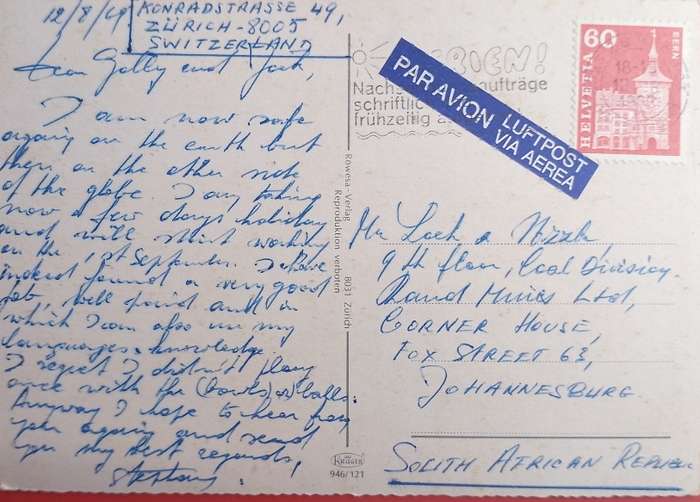 12/8/69
KONRADSTRASSE 49,
ZÜRICH-8005
SWITZERLAND
Dear Golly and Jack,
I am now safe
again on the earth but
then on the other side
of the globe. I am taking
now a few days holiday
and will start working
on the 1st September. I have
indeed found a very good
job, well paid and in
which I can also use my
languages knowledge.
I regret I didn't play
once with the (bowls) or balls.
Anyway I hope to hear from
you again and send
you my best regards,
Rowesa-Verlag 8031 Zürich
Reproduktion verboten
Krüger
946/121
FERIEN!
Nachs aufträge
schriftlic
frühzeitig a
PAR AVION LUFTPOST
VIA AEREA
60
HELVETIA
BERN
18-1
Mr Loch &
9th floor, Coal Division
Rand Mines Ltd,
CORNER HOUSE,
FOX STREET 63,
JOHANNESBURG
SOUTH AFRICAN REPUBLIC